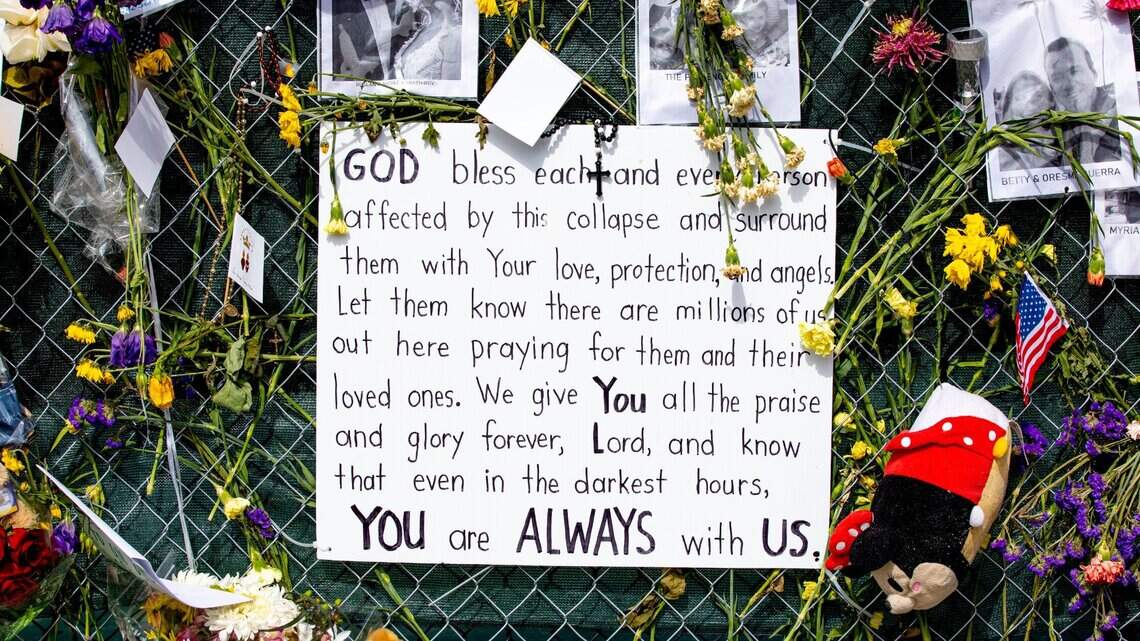 THE F   MILY
BETTY & ORES   UERRA
MYRIA
GOD bless each and every person
affected by this collapse and surround
them with Your love, protection, and angels.
Let them know there are millions of us
out here praying for them and their
loved ones. We give You all the praise
and glory forever, Lord, and know
that even in the darkest hours,
YOU are ALWAYS with US.